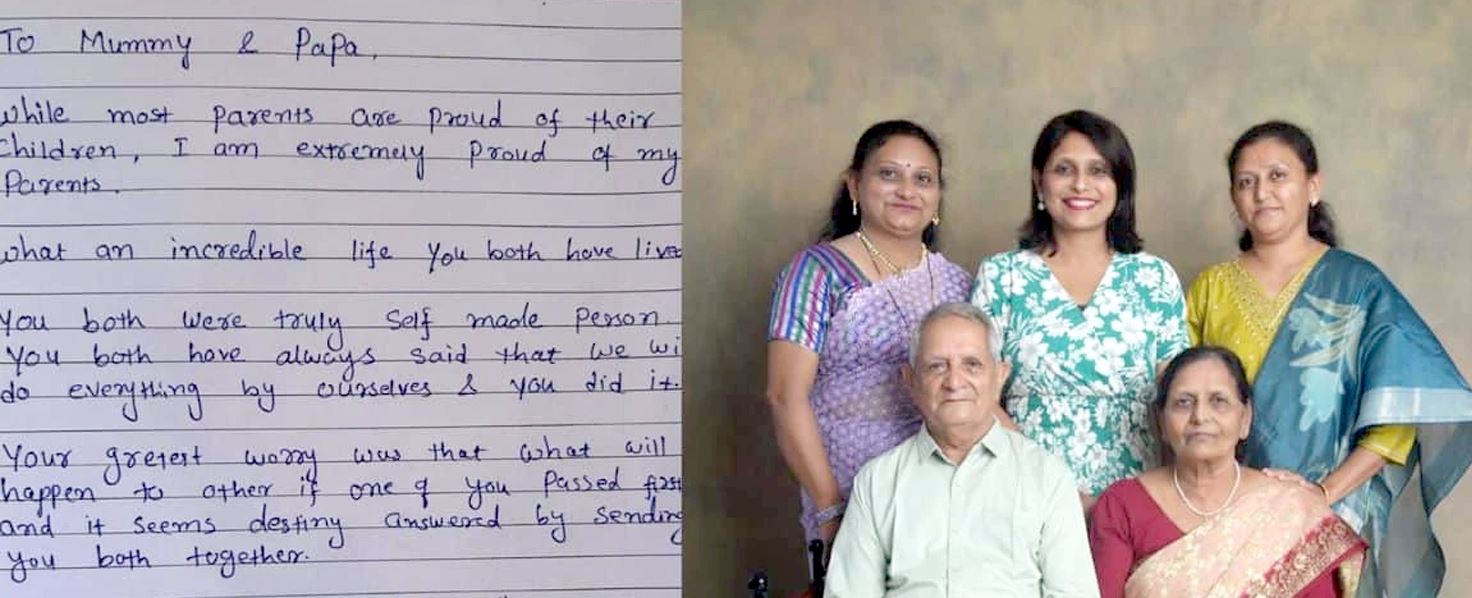 To Mummy & Papa,
While most parents are proud of their
children, I am extremely proud of my
Parents.
What an incredible life you both have lived
You both were truly self made person.
You both have always said that we wi
do everything by ourselves & you did it.
Your gretest worry was that what will
happen to other if one of you passed first
and it seems destiny answered by sending
you both together.